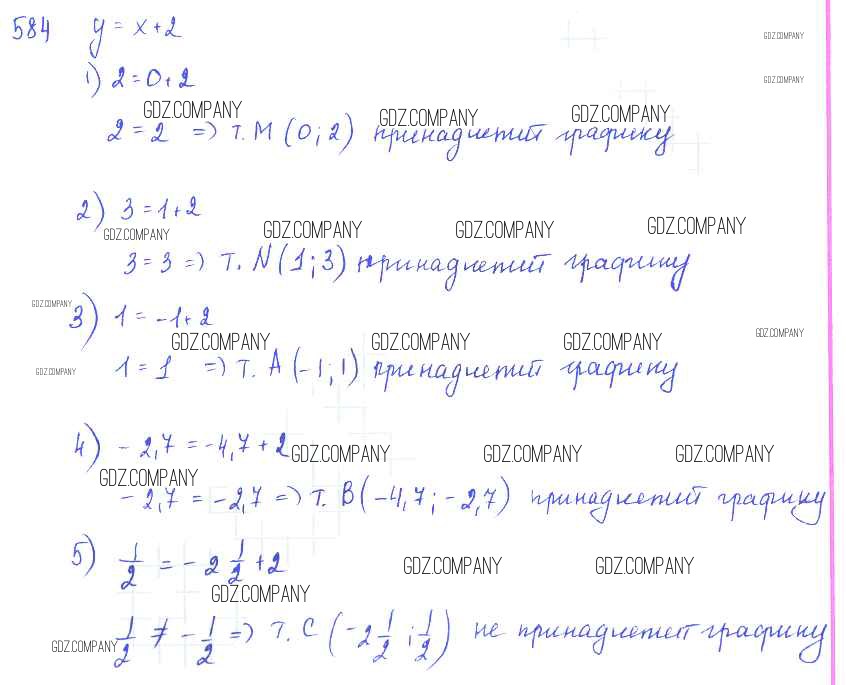 584 y = x + 2
GDZ.COMPANY
1) 2 = 0 + 2
GDZ.COMPANY
GDZ.COMPANY GDZ.COMPANY GDZ.COMPANY
2 = 2 => т. M (0; 2) принадлежит графику
2) 3 = 1 + 2
GDZ.COMPANY GDZ.COMPANY GDZ.COMPANY GDZ.COMPANY
3 = 3 => т. N (1; 3) принадлежит графику
GDZ.COMPANY
3) 1 = -1 + 2
GDZ.COMPANY GDZ.COMPANY GDZ.COMPANY GDZ.COMPANY
GDZ.COMPANY
1 = 1 => т. A (-1; 1) принадлежит графику
4) -2,7 = -4,7 + 2
GDZ.COMPANY GDZ.COMPANY GDZ.COMPANY
GDZ.COMPANY
-2,7 = -2,7 => т. B (-4,7; -2,7) принадлежит графику
5) 1/2 = -2 1/2 + 2
GDZ.COMPANY GDZ.COMPANY
GDZ.COMPANY
GDZ.COMPANY
1/2 ≠ -1/2 => т. C (-2 1/2; 1/2) не принадлежит графику